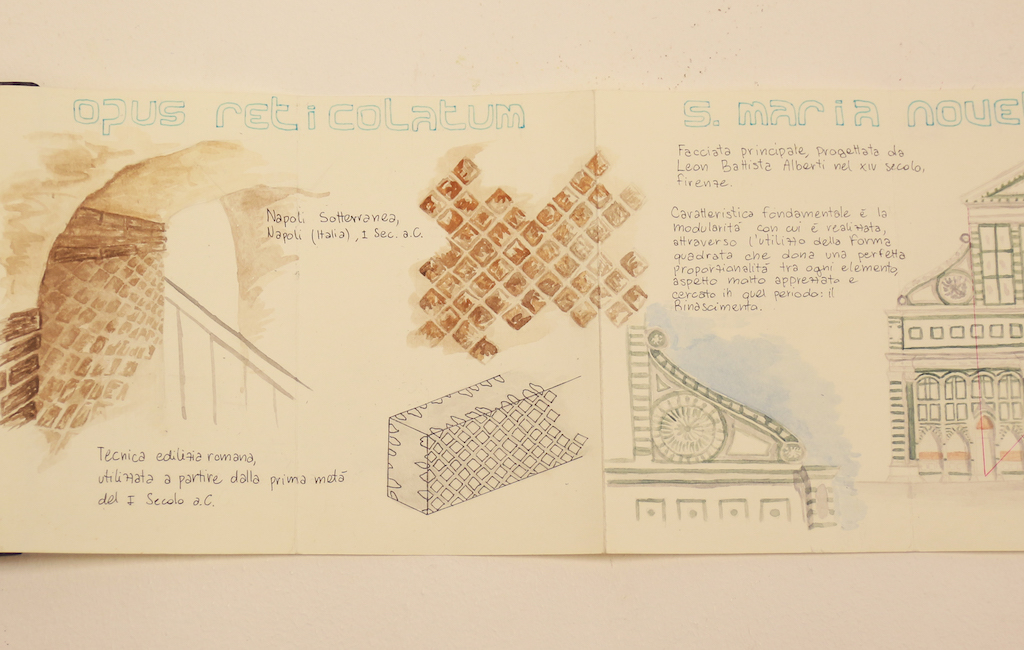 opus reticolatum
Napoli Sotterranea,
Napoli (Italia), I Sec. a.C.
Tecnica edilizia romana,
utilizzata a partire dalla prima metá
del I Secolo a.C.
S. maria novel
Facciata principale, progettata da
Leon Battista Alberti nel XIV secolo,
Firenze.
Caratteristica fondamentale é la
modularitá con cui é realizzata,
attraverso l'utilizzo della forma
quadrata che dona una perfetta
proporzionalitá tra ogni elemento,
aspetto molto apprezzato e
cercato in quel periodo: il
Rinascimento.